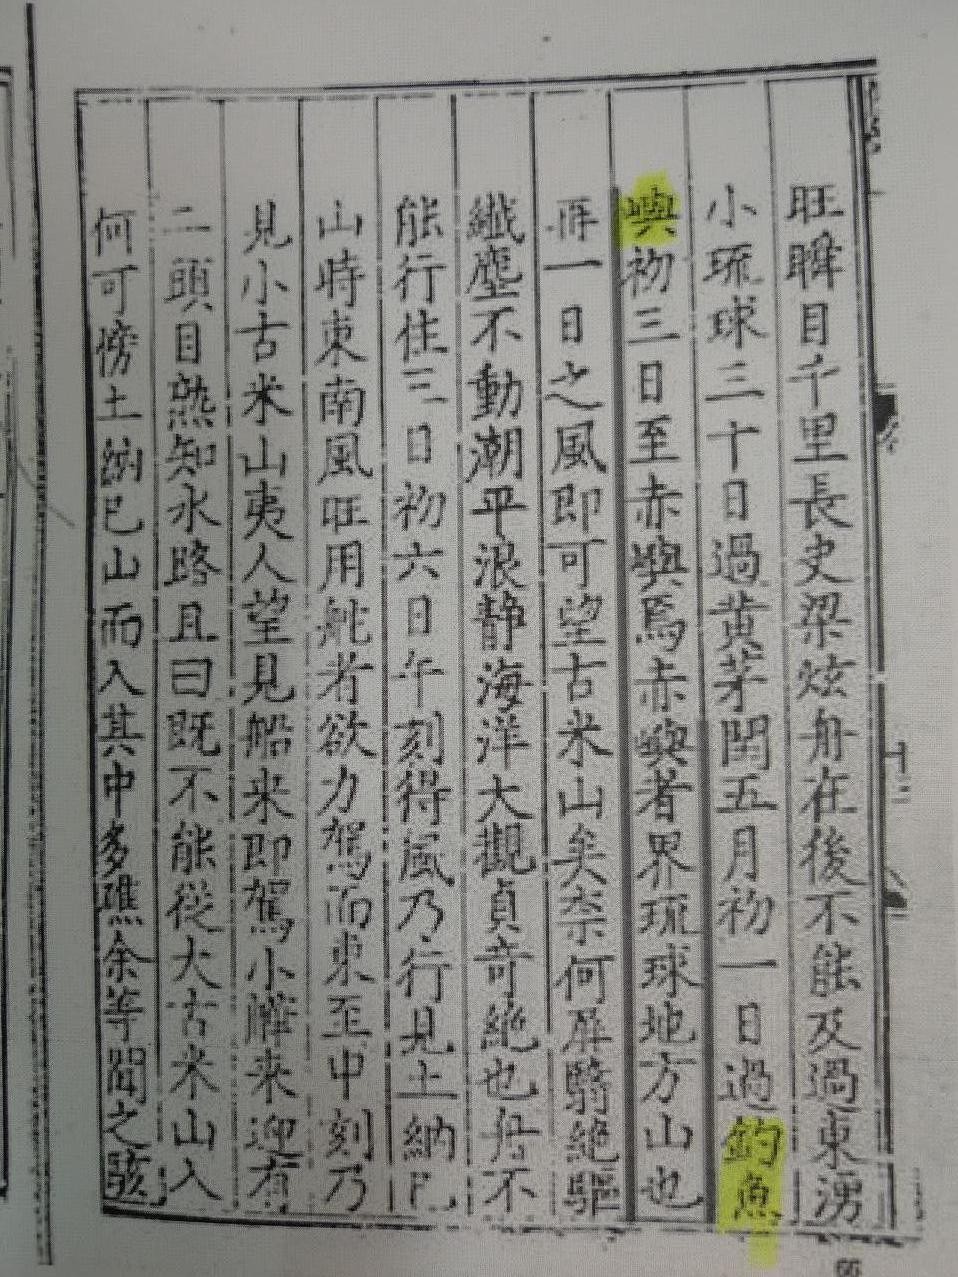 旺瞬目千里長史梁炫舟在後不能及過東湧
小琉球三十日過黄茅閏五月初一日過釣魚
嶼初三日至赤嶼焉赤嶼者界琉球地方山也
再一日之風即可望古米山矣奈何屏翳絶驅
纖塵不動潮平浪静海洋大觀真奇絶也舟不
能行住三日初六日午刻得風乃行見土納巳
山時東南風旺用舵者欲力駕而東至申刻乃
見小古米山夷人望見船来即駕小䑳来迎有
二頭目熟知水路且曰既不能從大古米山入
何可傍土納巳山而入其中多礁余等聞之駭
66